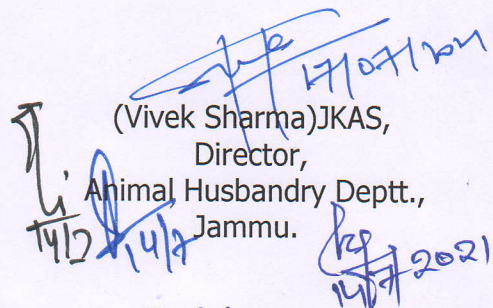 17/07/2021
(Vivek Sharma)JKAS,
Director,
Animal Husbandry Deptt.,
Jammu.
14/7
14/7
14/7/2021